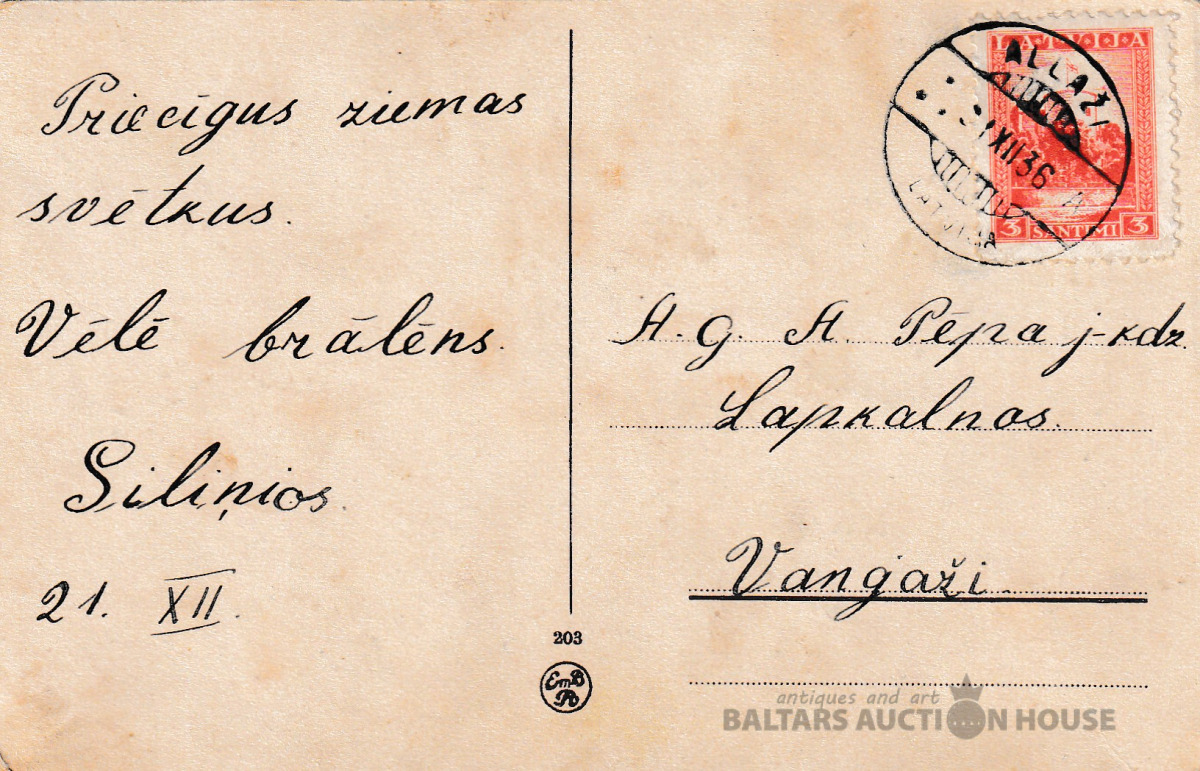 Priecīgus ziemas
svētkus.
Vēlē brālēns.
Siliņios.
21. XII.
203
EmB
LATVIJA
3 SANTIMI 3
ALLAŽI
XII 36
LATVIJA
A. G. A. Pēpa j-kdz.
Lapkalnos.
Vangaži
antiques and art
BALTARS AUCTION HOUSE